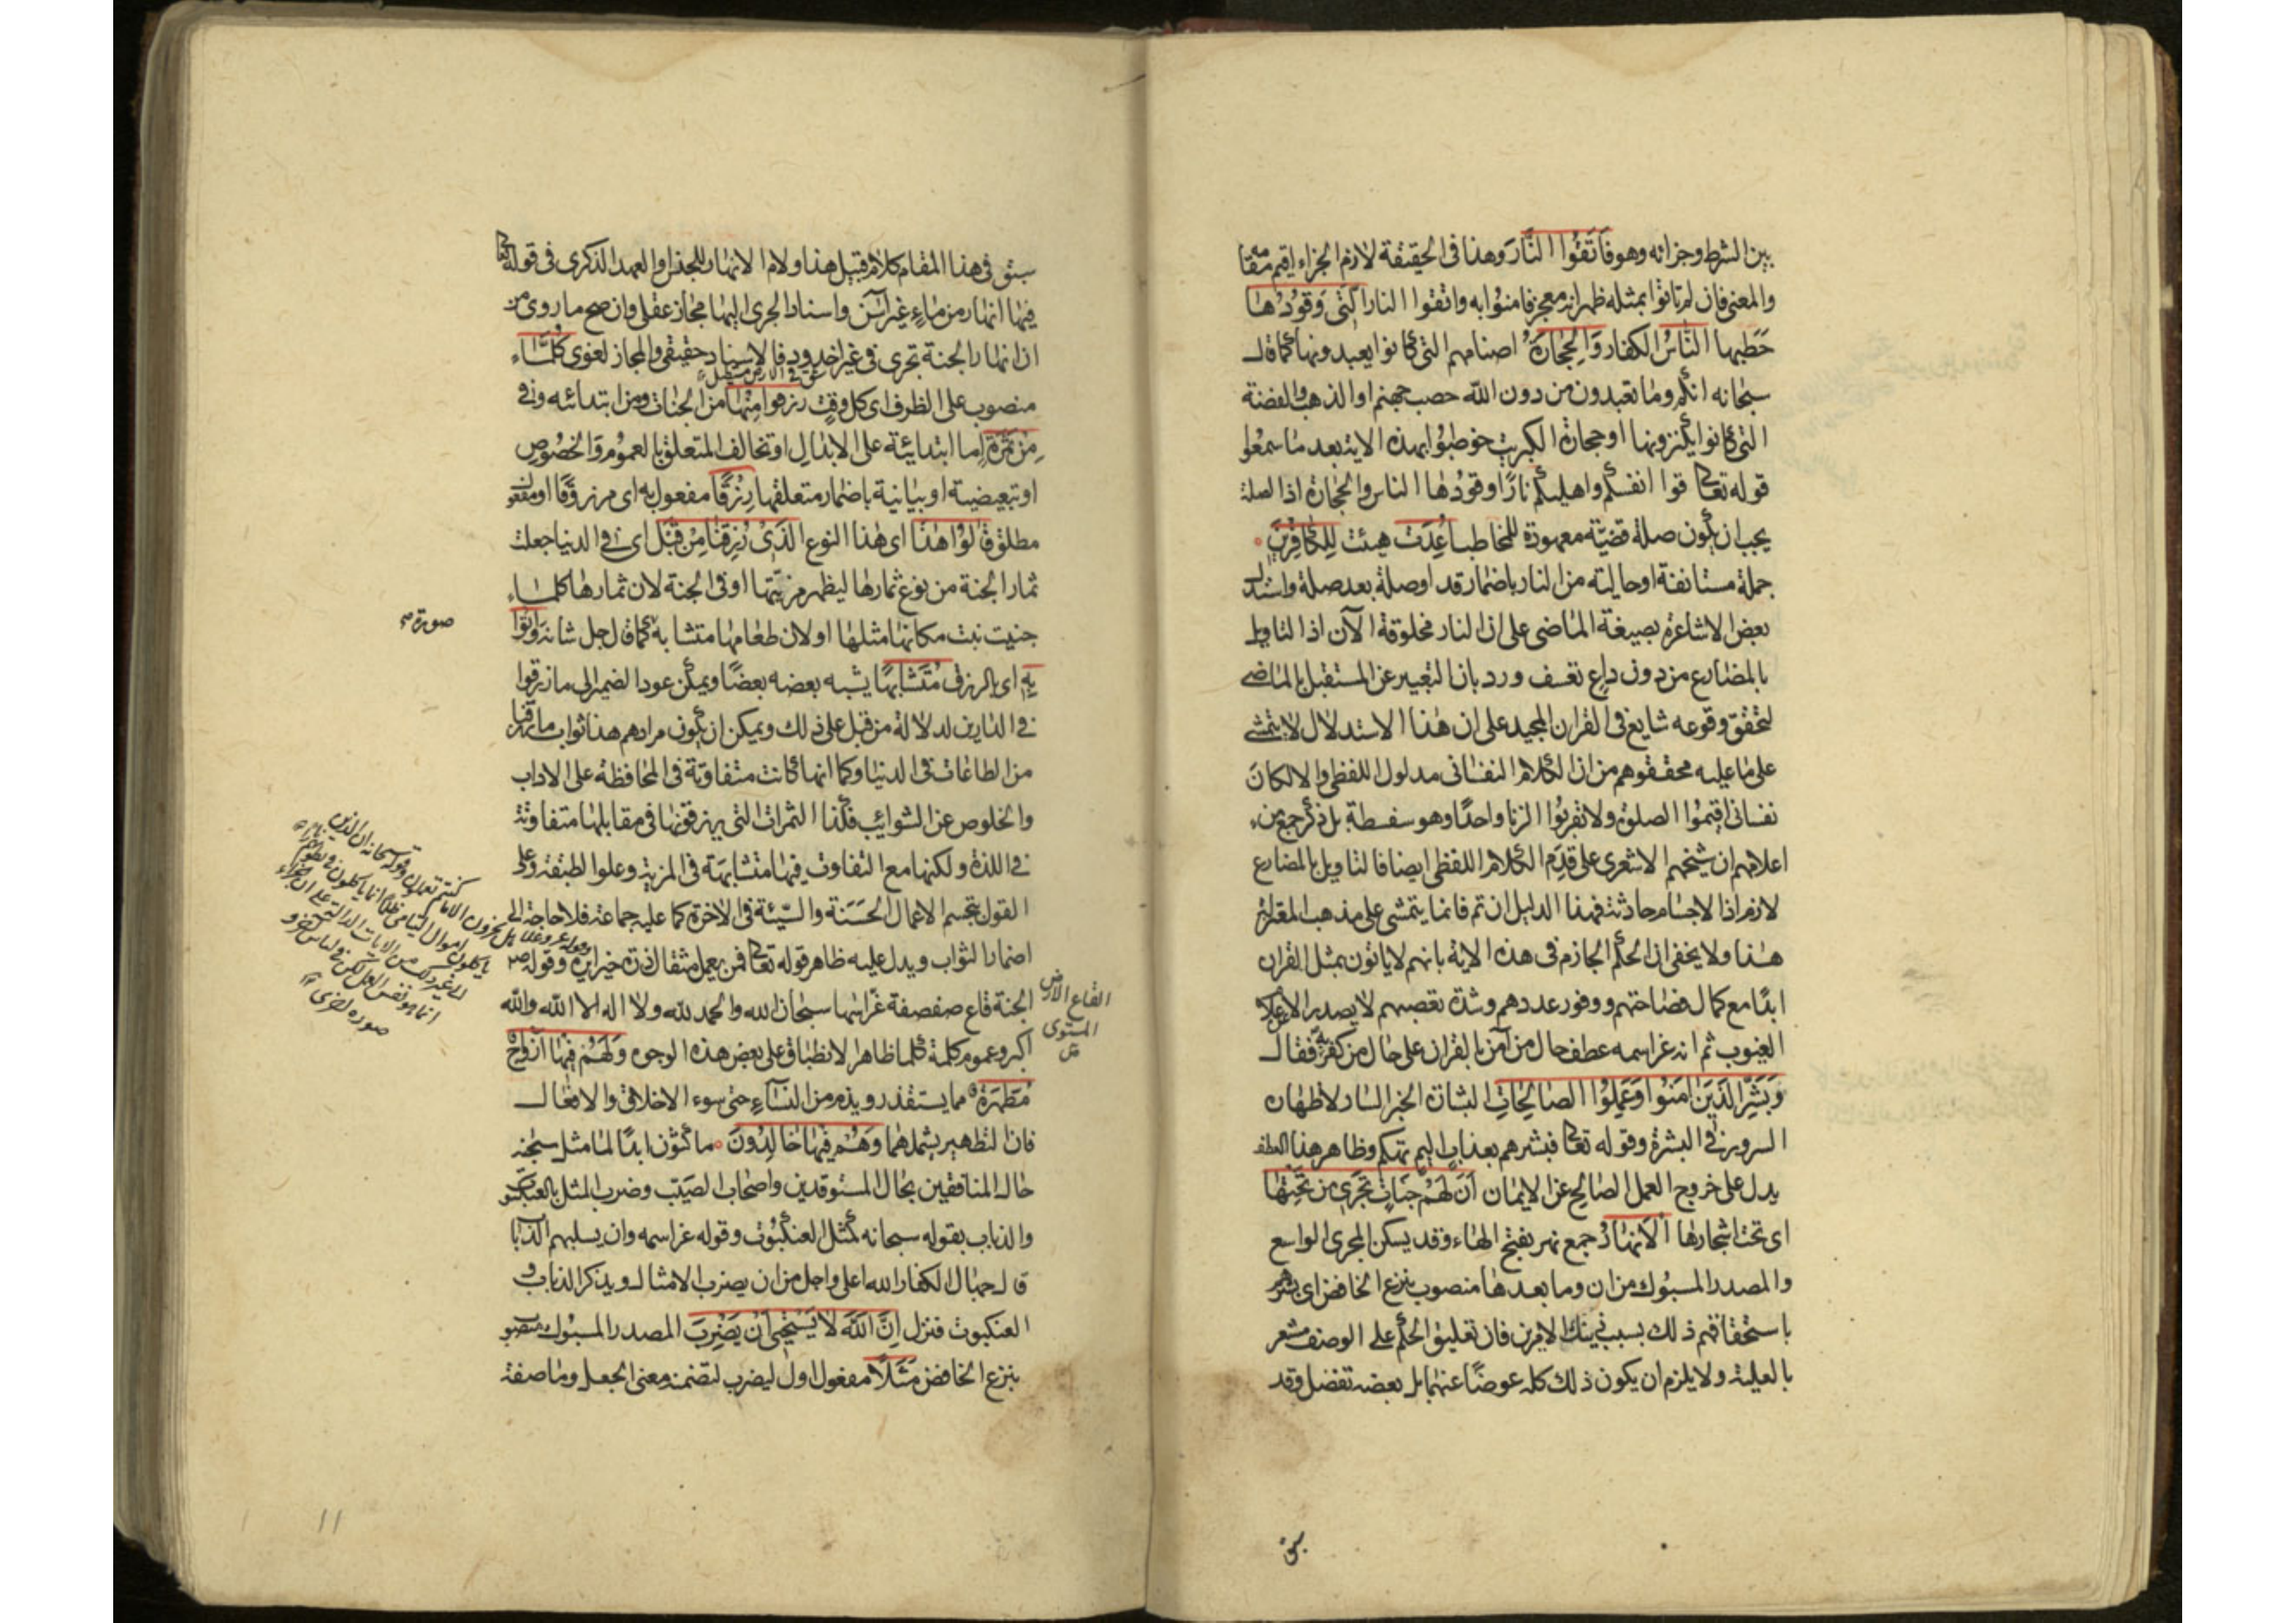 بين الشرط وجزائه وهو فَاتَّقُوا النَّارَ وهذا في الحقيقة لازم الجزاء اقيم مقا
والمعنى فان لم تاتوا بمثله ظهر انه معجز فامنوا به واتقوا النار الَّتِي وَقُودُهَا
حَطَبها النَّاسُ الكفار وَالْحِجَارَةُ اصنامهم التي كانوا يعبدونها كما قال
سبحانه انكم وما تعبدون من دون الله حصب جهنم او الذهب والفضة
التي كانوا يكنزونها او حجارة الكبريت خوطبوا بهذه الاية بعد ما سمعوا
قوله تعالى قوا انفسكم واهليكم نارًا وقودها الناس والحجارة اذ الصلة
يجب ان يكون صلة قضيّة معهودة للمخاطب اُعِدَّتْ هيئت لِلْكَافِرِينَ
جملة مستانفة او حالية من النار باضمار قد او صلة بعد صلة واستدل
بعض الاشاعرة بصيغة الماضي على ان النار مخلوقة الآن اذ التاويل
بالمضارع من دون داع تعسف ورد بان التعبير عن المستقبل بالماضي
لتحقق وقوعه شايع في القران المجيد على ان هذا الاستدلال لا يتمشى
على ما عليه محققوهم من ان الكلام النفساني مدلول اللفظي والا لكان
نفساني اقيموا الصلوة ولا تقربوا الزنا واحدًا وهو سفسطة بل ذكر جمع من
اعلامهم ان شيخهم الاشعري على قدم الكلام اللفظي ايضا فالتاويل بالمضارع
لازم اذ الاجسام حادثة فهذا الدليل ان تم فانما يتمشى على مذهب المعتزلة
هذا ولا يخفى ان الحكم الجازم في هذه الاية بانهم لا ياتون بمثل القران
ابدًا مع كمال فصاحتهم ووفور عددهم وشدة تعصبهم لا يصدر الا عن علام
الغيوب ثم انه عز اسمه عطف حال من آمن بالقران على حال من كفر به فقال
وَبَشِّرِ الَّذِينَ اٰمَنُوا وَعَمِلُوا الصَّالِحَاتِ البشارة الخبر السار لاظهاره
السرور في البشرة وقوله تعالى فبشرهم بعذاب اليم تهكم وظاهر هذا العطف
يدل على خروج العمل الصالح عن الايمان اَنَّ لَهُمْ جَنَّاتٍ تَجْرِي مِن تَحْتِهَا
اي تحت اشجارها الْاَنْهَارُ جمع نهر بفتح الهاء وقد يسكن المجرى الواسع
والمصدر المسبوك من ان وما بعدها منصوب بنزع الخافض اي بشرهم
باستحقاقهم ذلك بسبب ذينك الامرين فان تعليق الحكم على الوصف مشعر
بالعلية ولا يلزم ان يكون ذلك كله عوضًا عنهما بل بعضه تفضل وقد
سبق
سبق في هذا المقام كلام قبيل هذا ولام الانهار للجنس او العهد الذكري في قوله تعالى
فيها انهار من ماء غير آسن واسناد الجري اليها مجاز عقلي وان صح ما روي من
ان انهار الجنة تجري في غير اخدود فالاسناد حقيقي والمجاز لغوي كُلَّمَا
شق في الارض مستطيل
منصوب على الظرف اي كل وقت رزقوا مِنْهَا من الجنات ومن ابتدائه وفي
مِنْ ثَمَرَةٍ اما ابتدائية على الابدال او تخالف المتعلق بالعموم والخصوص
او تبعيضية او بيانية باضمار متعلقها رِزْقًا مفعول به اي مرزوقًا او مفعول
مطلق قَالُوا هٰذَا اي هذا النوع الَّذِي رُزِقْنَا مِنْ قَبْلُ اي في الدنيا جعلت
ثمار الجنة من نوع ثمارها ليظهر مزيّتها او في الجنة لان ثمارها كلما
جنيت نبت مكانها مثلها او لان طعامها متشابه كما قال جل شانه وَاُتُوا
صورة
بِهِ اي بالرزق مُتَشَابِهًا يشبه بعضه بعضًا ويمكن عود الضمير الى ما رزقوا
في الدارين لدلالة من قبل على ذلك ويمكن ان يكون مرادهم هذا ثواب ما رزقنا
من الطاعات في الدنيا وكما انها كانت متفاوتة في المحافظة على الاداب
والخلوص عن الشوائب فكذا الثمرات التي يرزقونها في مقابلها متفاوتة
في اللذة ولكنها مع التفاوت فيها متشابهة في المزية وعلو الطبقة وعلى
القول بتجسم الاعمال الحسنة والسّيئة في الاخرة كما عليه جماعة فلا حاجة الى
اضمار الثواب ويدل عليه ظاهر قوله تعالى فمن يعمل مثقال ذرة خيرا يره وقوله ص
الجنة قاع صفصفة غراسها سبحان الله والحمد لله ولا اله الا الله والله
اكبر وعموم كلمة كلما ظاهر الانطباق على بعض هذه الوجوه وَلَهُمْ فِيهَا اَزْوَاجٌ
مُطَهَّرَةٌ مما يستقذر ويذم من النساء حتى سوء الاخلاق والافعال
فان التطهير يشملهما وَهُمْ فِيهَا خَالِدُونَ ماكثون ابدًا لما مثل سبحانه
حال المنافقين بحال المستوقدين واصحاب الصيّب وضرب المثل بالعنكبوت
والذباب بقوله سبحانه كمثل العنكبوت وقوله عز اسمه وان يسلبهم الذباب
قال جهال الكفار الله اعلى واجل من ان يضرب الامثال ويذكر الذباب و
العنكبوت فنزل اِنَّ اللّٰهَ لَا يَسْتَحْيِي اَنْ يَضْرِبَ المصدر المسبوك منصوب
بنزع الخافض مَثَلًا مفعول اول ليضرب لتضمنه معنى الجعل وما صفة
القاع الارض
المستوي
ياكلون اموال اليتامى ظلما انما ياكلون في بطونهم
انما هو نفس العمل لكن في لباس اخر و
صورة اخرى
11